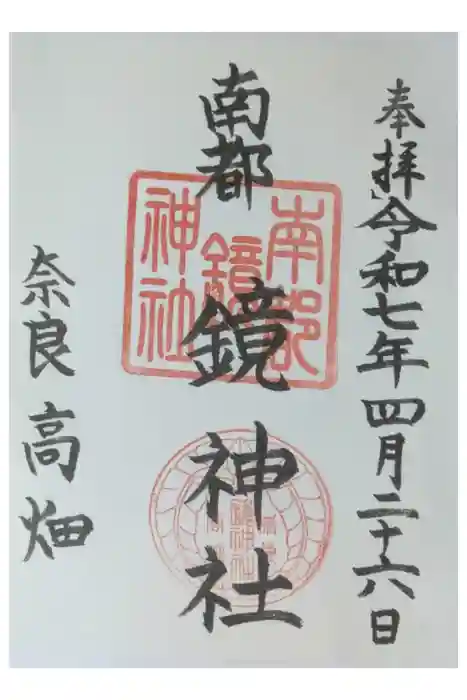 奉拝 令和七年四月二十六日
南都 鏡神社
奈良 高畑
南都
鏡
神社